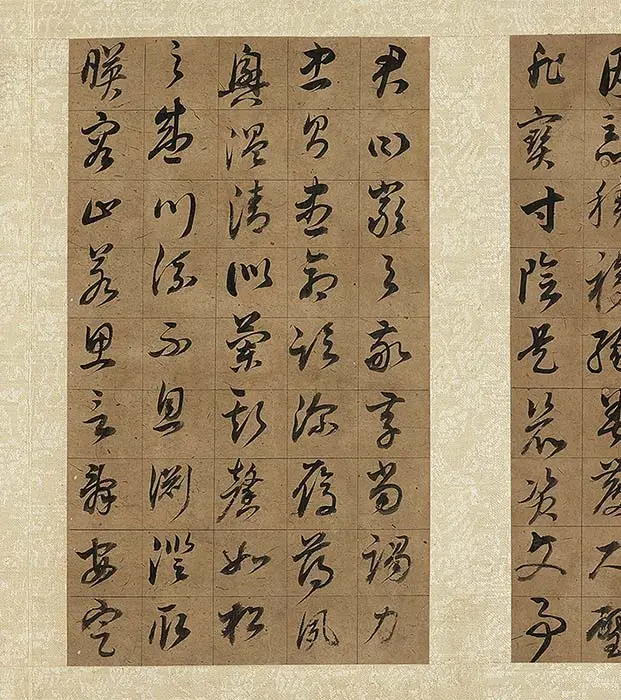 因惡積福緣善慶尺璧
非寶寸陰是競資父事
君曰嚴與敬孝當竭力
忠則盡命臨深履薄夙
興溫清似蘭斯馨如松
之盛川流不息淵澄取
暎容止若思言辭安定